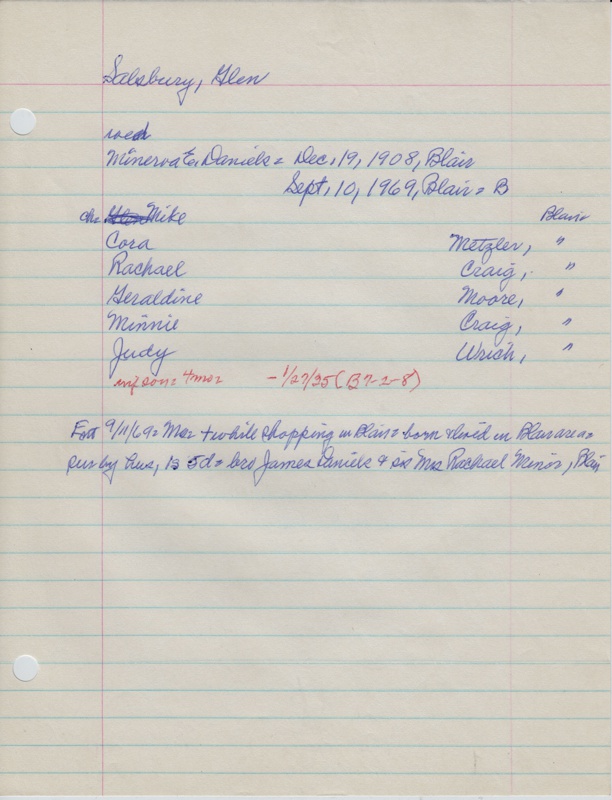 Salsbury, Glen
wed
Minerva E. Daniels = Dec. 19, 1908, Blair
Sept. 10, 1969, Blair = B
chs Mike Blair
Cora Metzler, "
Rachael Craig, "
Geraldine Moore, "
Minnie Craig, "
Judy Wrich, "
inf son = 4 mos - 1/27/35 (B7-2-8)
Ent 9/11/69 = Mrs + while shopping in Blair = born & lived in Blair area =
sur by hus, 1s 5d = bro James Daniels & sis Mrs Rachael Minor, Blair